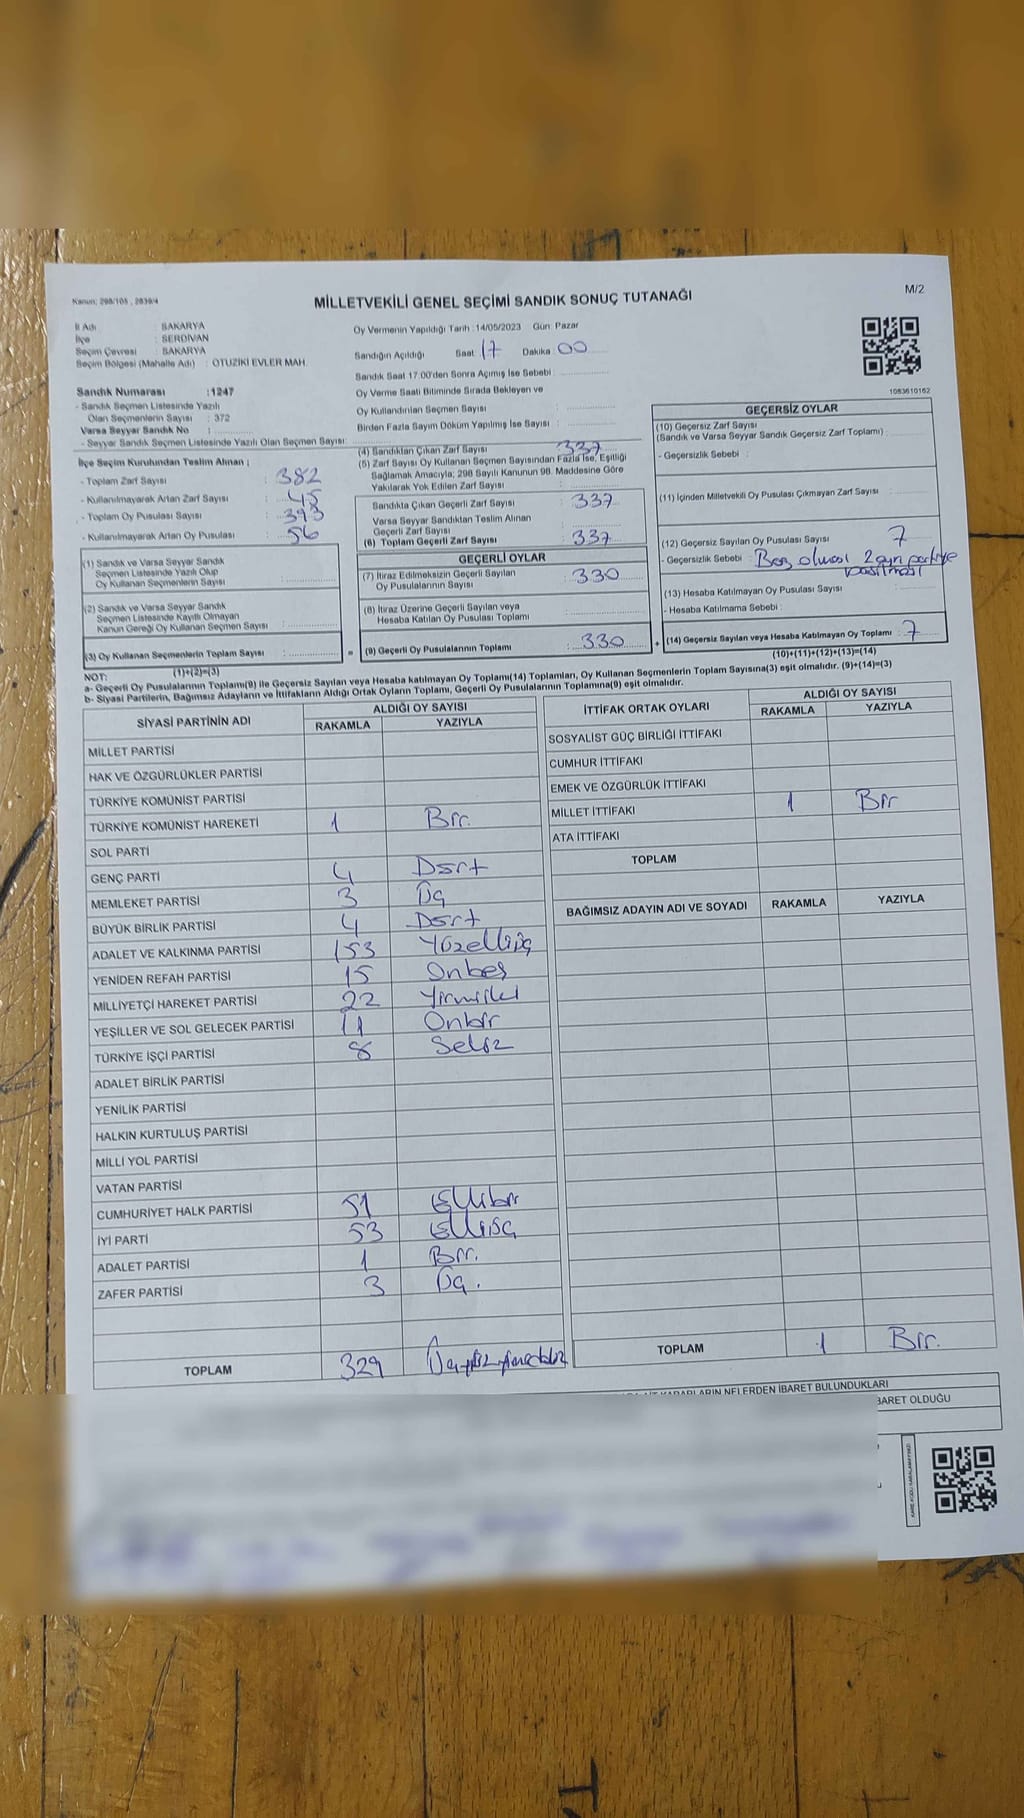 Kanun; 298/105 , 2839/4
MİLLETVEKİLİ GENEL SEÇİMİ SANDIK SONUÇ TUTANAĞI
M/2
İl Adı : SAKARYA
İlçe : SERDİVAN
Seçim Çevresi : SAKARYA
Seçim Bölgesi (Mahalle Adı) : OTUZİKİ EVLER MAH.
Oy Vermenin Yapıldığı Tarih : 14/05/2023 Gün: Pazar
Sandığın Açıldığı Saat 17 Dakika 00
Sandık Saat 17:00'den Sonra Açılmış İse Sebebi :
Oy Verme Saati Bitiminde Sırada Bekleyen ve
Oy Kullandırılan Seçmen Sayısı :
Birden Fazla Sayım Döküm Yapılmış İse Sayısı :
1083610162
Sandık Numarası :1247
- Sandık Seçmen Listesinde Yazılı
Olan Seçmenlerin Sayısı : 372
Varsa Seyyar Sandık No :
- Seyyar Sandık Seçmen Listesinde Yazılı Olan Seçmen Sayısı:
İlçe Seçim Kurulundan Teslim Alınan ;
- Toplam Zarf Sayısı : 382
- Kullanılmayarak Artan Zarf Sayısı : 45
- Toplam Oy Pusulası Sayısı : 393
- Kullanılmayarak Artan Oy Pusulası : 56
(1) Sandık ve Varsa Seyyar Sandık
Seçmen Listesinde Yazılı Olup
Oy Kullanan Seçmenlerin Sayısı :
(2) Sandık ve Varsa Seyyar Sandık
Seçmen Listesinde Kayıtlı Olmayan
Kanun Gereği Oy Kullanan Seçmen Sayısı :
(3) Oy Kullanan Seçmenlerin Toplam Sayısı : =
(1)+(2)=(3)
(4) Sandıktan Çıkan Zarf Sayısı : 337
(5) Zarf Sayısı Oy Kullanan Seçmen Sayısından Fazla İse, Eşitliği
Sağlamak Amacıyla; 298 Sayılı Kanunun 98. Maddesine Göre
Yakılarak Yok Edilen Zarf Sayısı :
Sandıkta Çıkan Geçerli Zarf Sayısı : 337
Varsa Seyyar Sandıktan Teslim Alınan
Geçerli Zarf Sayısı :
(6) Toplam Geçerli Zarf Sayısı : 337
GEÇERLİ OYLAR
(7) İtiraz Edilmeksizin Geçerli Sayılan
Oy Pusulalarının Sayısı : 330
(8) İtiraz Üzerine Geçerli Sayılan veya
Hesaba Katılan Oy Pusulası Toplamı :
(9) Geçerli Oy Pusulalarının Toplamı : 330 +
GEÇERSİZ OYLAR
(10) Geçersiz Zarf Sayısı
(Sandık ve Varsa Seyyar Sandık Geçersiz Zarf Toplamı) :
- Geçersizlik Sebebi :
(11) İçinden Milletvekili Oy Pusulası Çıkmayan Zarf Sayısı :
(12) Geçersiz Sayılan Oy Pusulası Sayısı : 7
- Geçersizlik Sebebi : Boş olması 2 ayrı partiye
basılması
(13) Hesaba Katılmayan Oy Pusulası Sayısı :
- Hesaba Katılmama Sebebi :
(14) Geçersiz Sayılan veya Hesaba Katılmayan Oy Toplamı : 7
(10)+(11)+(12)+(13)=(14)
NOT:
a- Geçerli Oy Pusulalarının Toplamı(9) ile Geçersiz Sayılan veya Hesaba katılmayan Oy Toplamı(14) Toplamları, Oy Kullanan Seçmenlerin Toplam Sayısına(3) eşit olmalıdır. (9)+(14)=(3)
b- Siyasi Partilerin, Bağımsız Adayların ve İttifakların Aldığı Ortak Oyların Toplamı, Geçerli Oy Pusulalarının Toplamına(9) eşit olmalıdır.
SİYASİ PARTİNİN ADI ALDIĞI OY SAYISI
RAKAMLA YAZIYLA
MİLLET PARTİSİ
HAK VE ÖZGÜRLÜKLER PARTİSİ
TÜRKİYE KOMÜNİST PARTİSİ
TÜRKİYE KOMÜNİST HAREKETİ 1 Bir.
SOL PARTİ
GENÇ PARTİ 4 Dört
MEMLEKET PARTİSİ 3 Üç
BÜYÜK BİRLİK PARTİSİ 4 Dört
ADALET VE KALKINMA PARTİSİ 153 Yüzelliüç
YENİDEN REFAH PARTİSİ 15 Onbeş
MİLLİYETÇİ HAREKET PARTİSİ 22 Yirmiiki
YEŞİLLER VE SOL GELECEK PARTİSİ 11 Onbir
TÜRKİYE İŞÇİ PARTİSİ 8 Sekiz
ADALET BİRLİK PARTİSİ
YENİLİK PARTİSİ
HALKIN KURTULUŞ PARTİSİ
MİLLİ YOL PARTİSİ
VATAN PARTİSİ
CUMHURİYET HALK PARTİSİ 51 Ellibir
İYİ PARTİ 53 Elliüç
ADALET PARTİSİ 1 Bir.
ZAFER PARTİSİ 3 Üç.
TOPLAM 329 Üçyüzyirmidokuz
İTTİFAK ORTAK OYLARI ALDIĞI OY SAYISI
RAKAMLA YAZIYLA
SOSYALİST GÜÇ BİRLİĞİ İTTİFAKI
CUMHUR İTTİFAKI
EMEK VE ÖZGÜRLÜK İTTİFAKI
MİLLET İTTİFAKI 1 Bir
ATA İTTİFAKI
TOPLAM
BAĞIMSIZ ADAYIN ADI VE SOYADI RAKAMLA YAZIYLA
TOPLAM 1 Bir.
KARARLARIN NELERDEN İBARET BULUNDUKLARI
BARET OLDUĞU